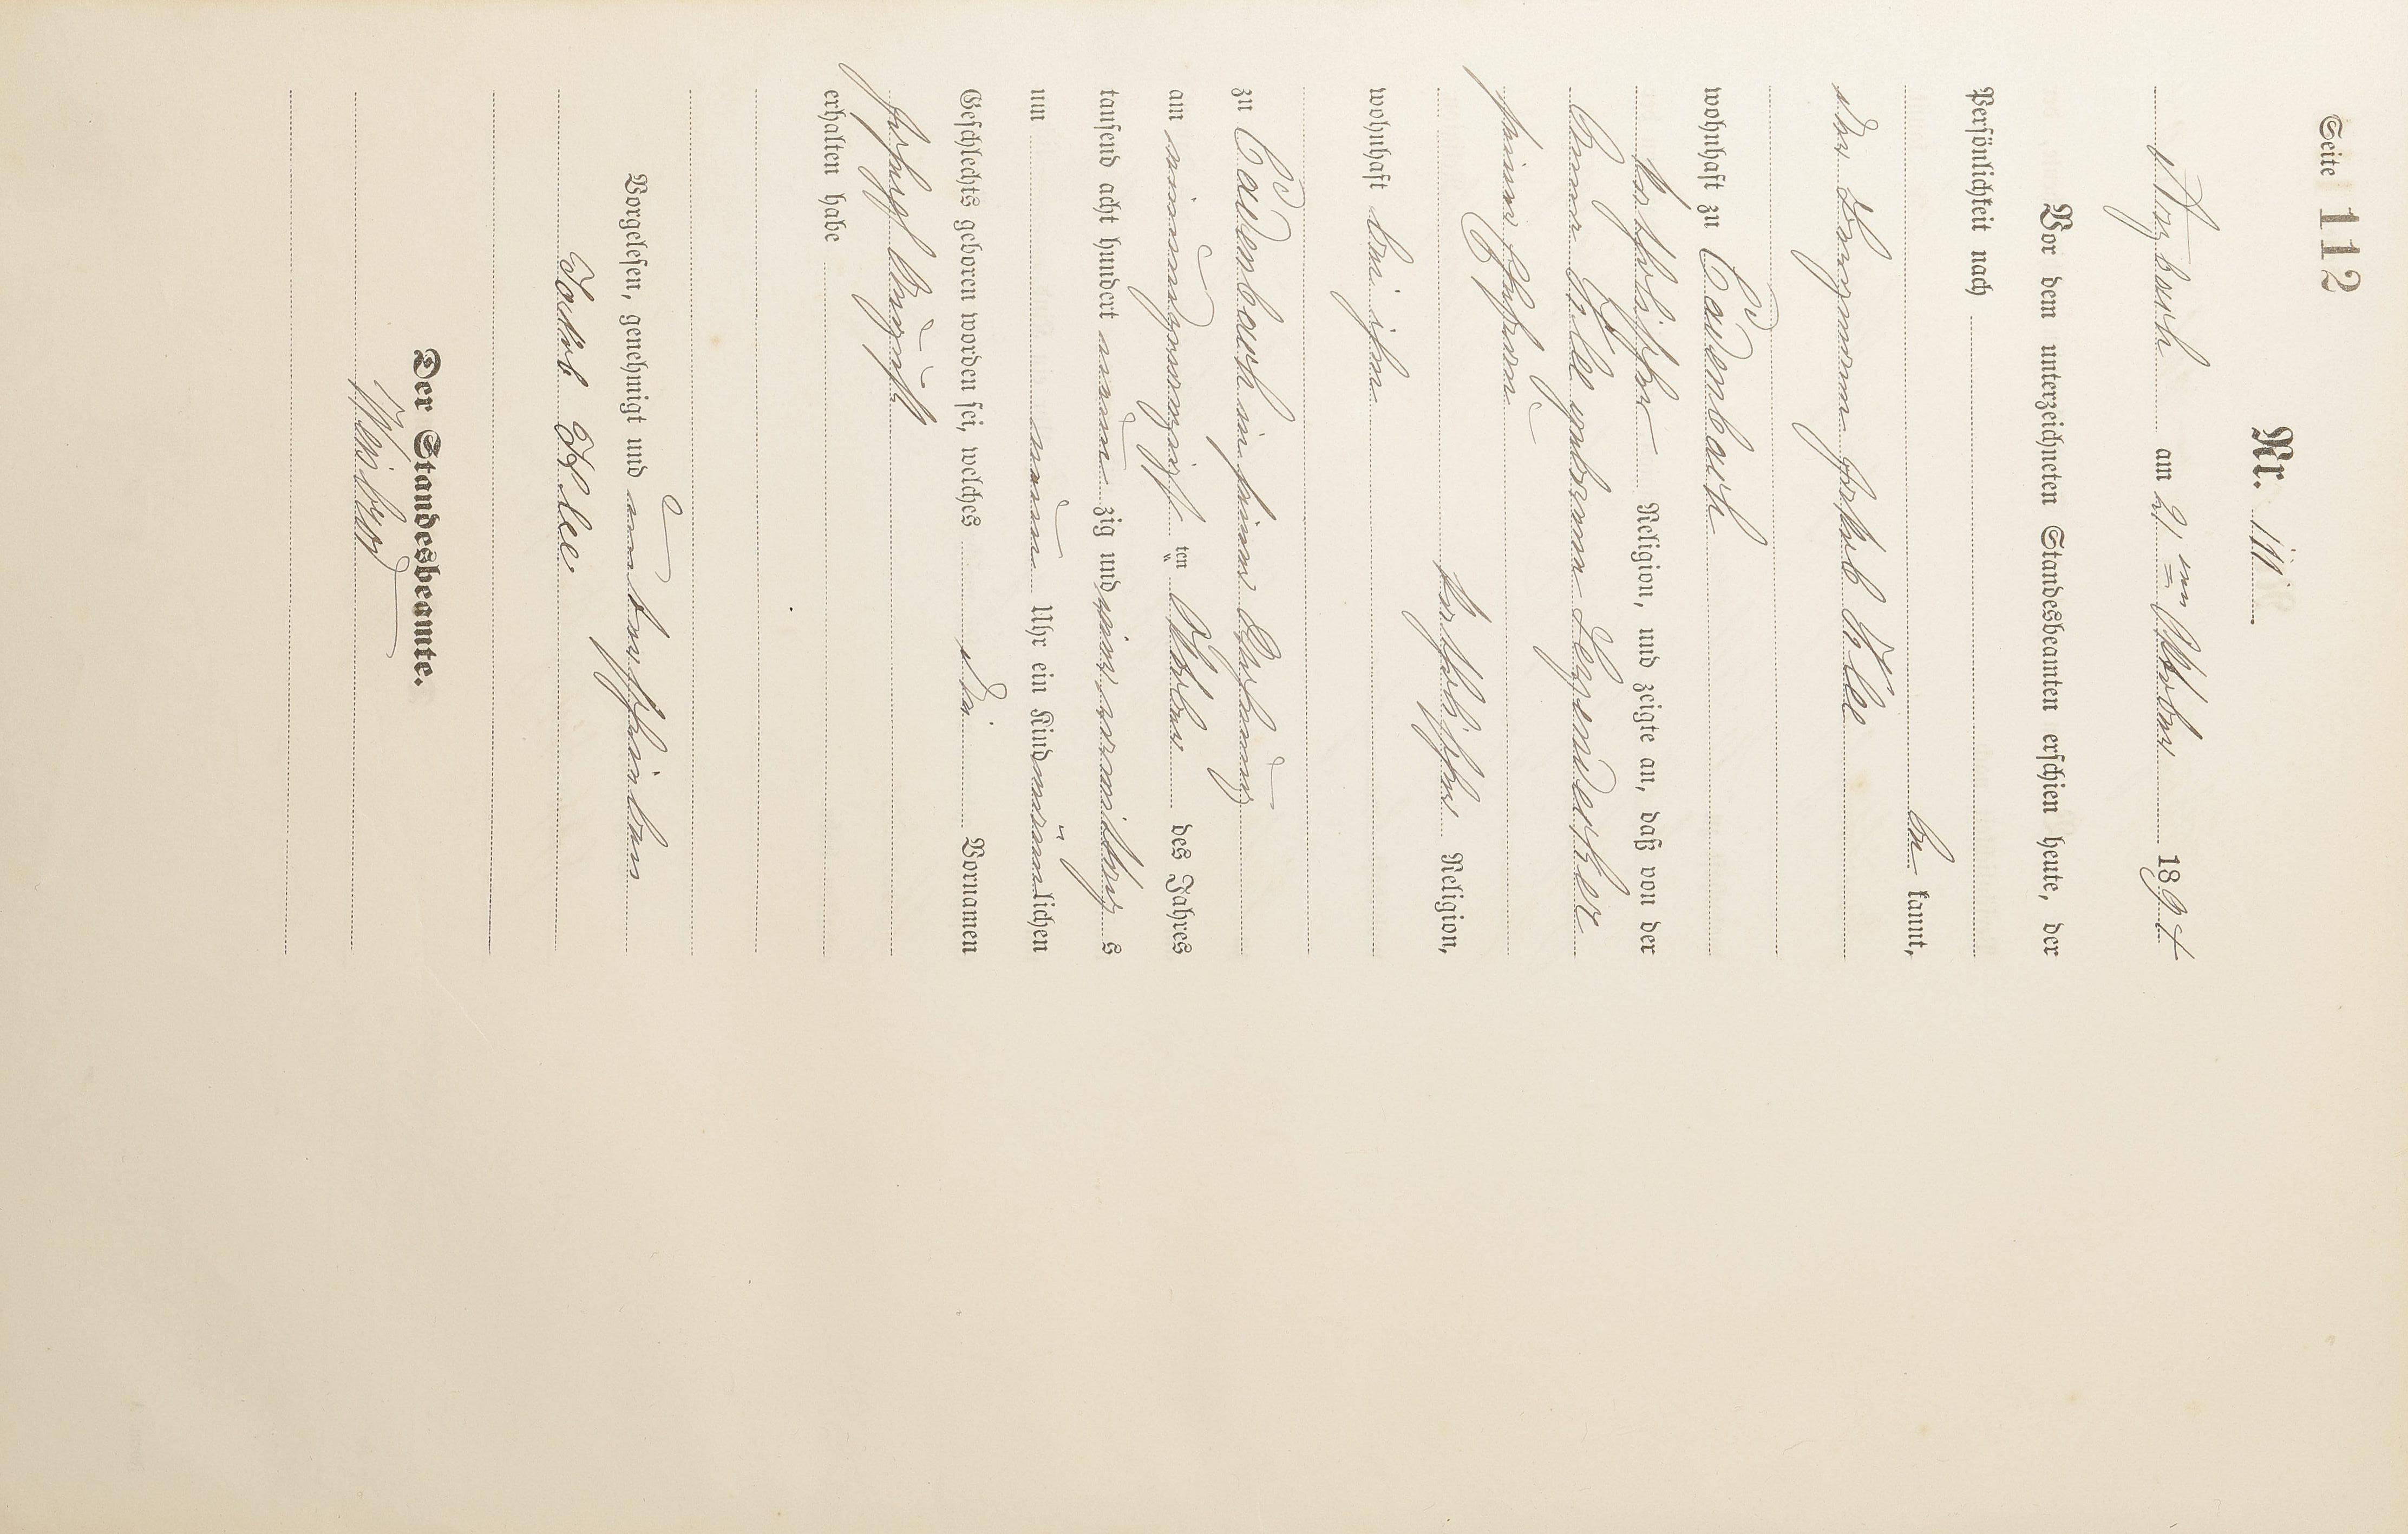 Seite 112
Nr. 111
am 21ten Oktober 1894
Vor dem unterzeichneten Standesbeamten erschien heute, der
Persönlichkeit nach
be kannt,
der Bergmann Jakob Klee
wohnhaft zu
katholischer Religion, und zeigte an, daß von der
Anna Klee geborenen
seiner Ehefrau
katholischer Religion,
wohnhaft bei ihm
zu in seiner Wohnung
am einundzwanzigsten ten Oktober des Jahres
tausend acht hundert neun zig und vier, vormittags
um neun Uhr ein Kind männlichen
Geschlechts geboren worden sei, welches die Vornamen
Joseph August
erhalten habe
Vorgelesen, genehmigt und unterschrieben
Jakob Klee.
Der Standesbeamte.